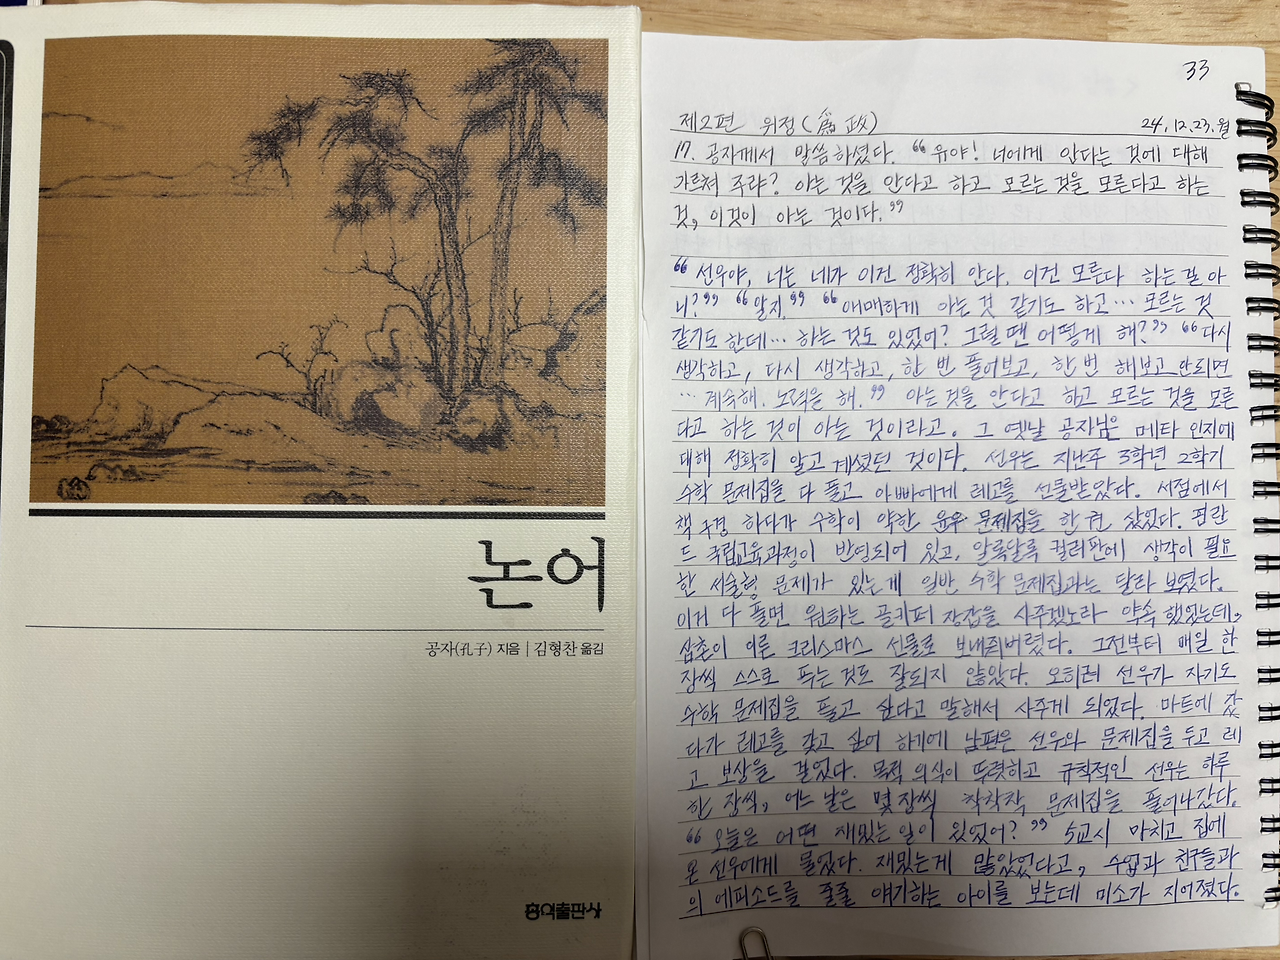 논어
공자(孔子) 지음 | 김형찬 옮김
홍익출판사
33
제2편 위정(爲政) 24.12.23.월
17. 공자께서 말씀하셨다. "유야! 너에게 안다는 것에 대해
가르쳐 주랴? 아는 것을 안다고 하고 모르는 것을 모른다고 하는
것, 이것이 아는 것이다."
"선우야, 너는 네가 이건 정확히 안다. 이건 모른다 하는 걸 아
니?" "알지." "애매하게 아는 것 같기도 하고… 모르는 것
같기도 한데… 하는 것도 있었어? 그럴 땐 어떻게 해?" "다시
생각하고, 다시 생각하고, 한 번 풀어보고, 한 번 해보고 안되면
… 계속해. 노력을 해." 아는 것을 안다고 하고 모르는 것을 모른
다고 하는 것이 아는 것이라고. 그 옛날 공자님은 메타 인지에
대해 정확히 알고 계셨던 것이다. 선우는 지난주 3학년 2학기
수학 문제집을 다 풀고 아빠에게 레고를 선물받았다. 서점에서
책 구경 하다가 수학이 약한 윤우 문제집을 한 권 샀었다. 핀란
드 국립교육과정이 반영되어 있고, 알록달록 컬러판에 생각이 필요
한 서술형 문제가 있는게 일반 수학 문제집과는 달라 보였다.
이거 다 풀면 원하는 골키퍼 장갑을 사주겠노라 약속했었는데,
삼촌이 이른 크리스마스 선물로 보내줘버렸다. 그전부터 매일 한
장씩 스스로 푸는 것도 잘되지 않았다. 오히려 선우가 자기도
수학 문제집을 풀고 싶다고 말해서 사주게 되었다. 마트에 갔
다가 레고를 갖고 싶어 하기에 남편은 선우와 문제집을 두고 레
고 보상을 걸었다. 목적 의식이 뚜렷하고 규칙적인 선우는 하루
한 장씩, 어느 날은 몇 장씩 착착착 문제집을 풀어나갔다.
"오늘은 어떤 재밌는 일이 있었어?" 5교시 마치고 집에
온 선우에게 물었다. 재밌는게 많았었다고, 수업과 친구들과
의 에피소드를 줄줄 얘기하는 아이를 보는데 미소가 지어졌다.